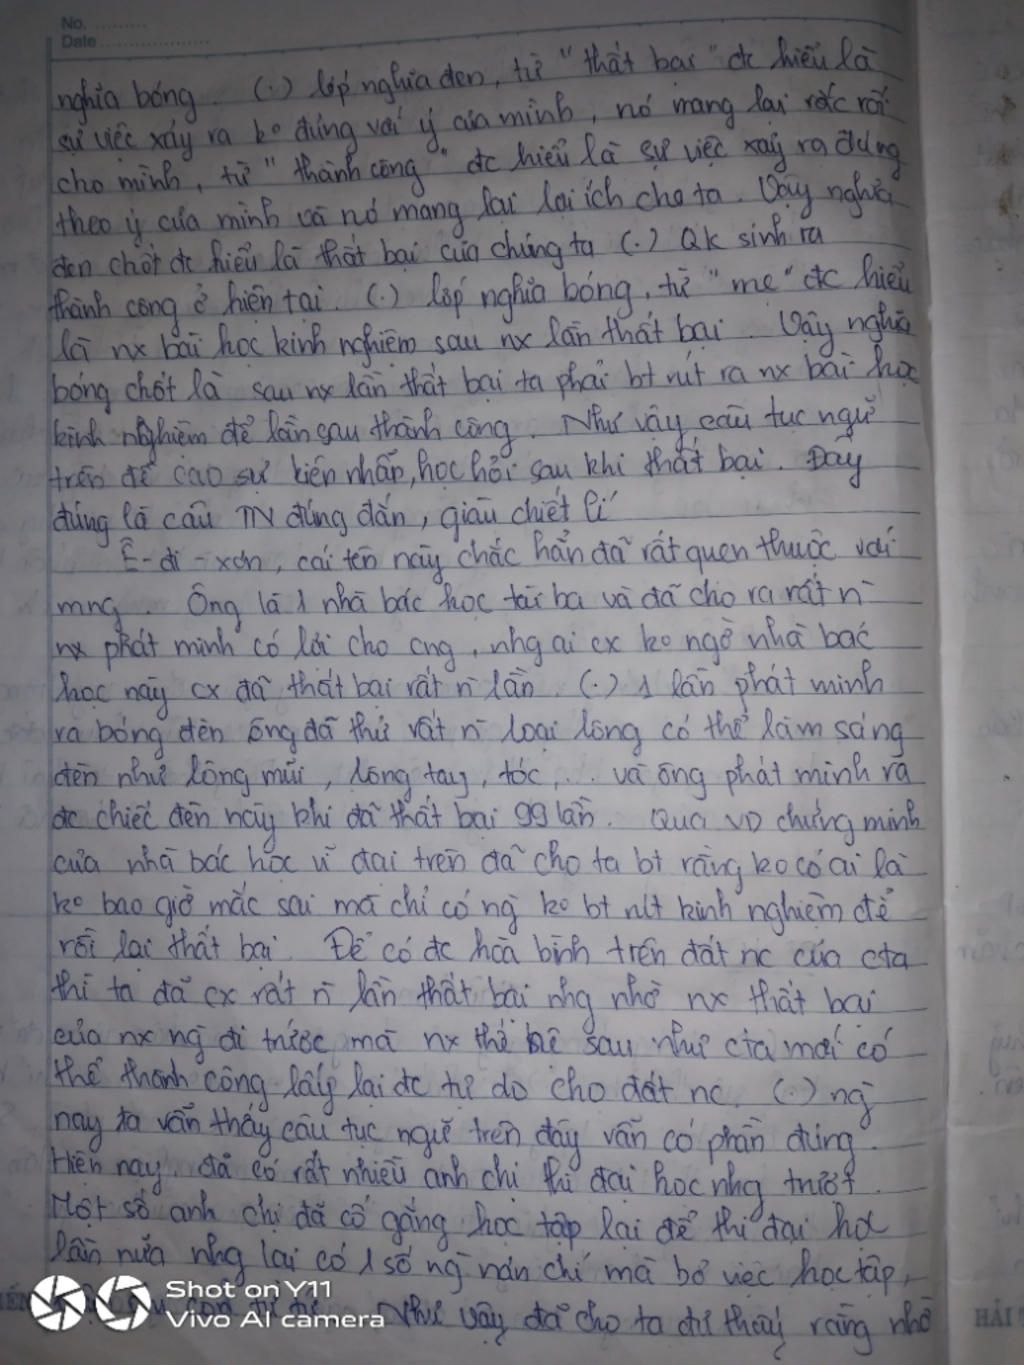 No. ..........
Date ....................
nghĩa bóng. (.) lớp nghĩa đen, từ "thất bại" đc hiểu là
sự việc xảy ra ko đúng với ý của mình, nó mang lại rắc rối
cho mình, từ "thành công" đc hiểu là sự việc xảy ra đúng
theo ý của mình và nó mang lại lợi ích cho ta. Vậy nghĩa
đen chốt đc hiểu là thất bại của chúng ta (.) Qk sinh ra
thành công ở hiện tại. (.) lớp nghĩa bóng, từ "mẹ" đc hiểu
là nx bài học kinh nghiệm sau nx lần thất bại. Vậy nghĩa
bóng chốt là sau nx lần thất bại ta phải bt rút ra nx bài học
kinh nghiệm để lần sau thành công. Như vậy câu tục ngữ
trên đề cao sự kiên nhẫn, học hỏi sau khi thất bại. Đây
đúng là câu TN đúng đắn, giàu chiết lí
Ê-đi-xơn, cái tên này chắc hẳn đã rất quen thuộc với
mng. Ông là 1 nhà bác học tài ba và đã cho ra rất n̄
nx phát minh có lời cho cng, nhg ai cx ko ngờ nhà bác
học này cx đã thất bại rất n̄ lần. (.) 1 lần phát minh
ra bóng đèn ông đã thử rất n̄ loại lông có thể làm sáng
đèn như lông mũi, lông tay, tóc,... và ông phát minh ra
đc chiếc đèn này khi đã thất bại 99 lần. Qua VD chứng minh
của nhà bác học vĩ đại trên đã cho ta bt rằng ko có ai là
ko bao giờ mắc sai mà chỉ có ng̀ ko bt rút kinh nghiệm để
rồi lại thất bại. Để có đc hòa bình trên đất nc của cta
thì ta đã cx rất n̄ lần thất bại nhg nhờ nx thất bại
của nx ng̀ đi trước mà nx thế hệ sau như cta mới có
thể thành công lấy lại đc tự do cho đất nc. (.) ng̀
nay ta vẫn thấy câu tục ngữ trên đây vẫn có phần đúng.
Hiện nay, đã có rất nhiều anh chị thi đại học nhg trượt.
Một số anh chị đã cố gắng học tập lại để thi đại học
lần nữa nhg lại có 1 số ng̀ nản chí mà bỏ việc học tập,
Như vậy đã cho ta thấy rằng nhờ
Shot on Y11
Vivo AI camera
HẢI